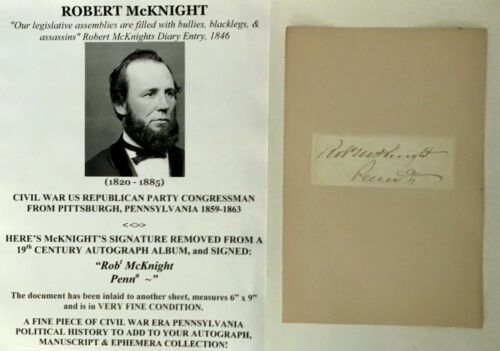 ROBERT McKNIGHT
"Our legislative assemblies are filled with bullies, blacklegs, &
assassins" Robert McKnights Diary Entry, 1846
(1820 - 1885)
CIVIL WAR US REPUBLICAN PARTY CONGRESSMAN
FROM PITTSBURGH, PENNSYLVANIA 1859-1863
<<>>
HERE'S McKNIGHT'S SIGNATURE REMOVED FROM A
19th CENTURY AUTOGRAPH ALBUM, and SIGNED:
"Robt McKnight
Penna ~"
The document has been inlaid to another sheet, measures 6" x 9"
and is in VERY FINE CONDITION.
A FINE PIECE OF CIVIL WAR ERA PENNSYLVANIA
POLITICAL HISTORY TO ADD TO YOUR AUTOGRAPH,
MANUSCRIPT & EPHEMERA COLLECTION!
Robt McKnight
Penna